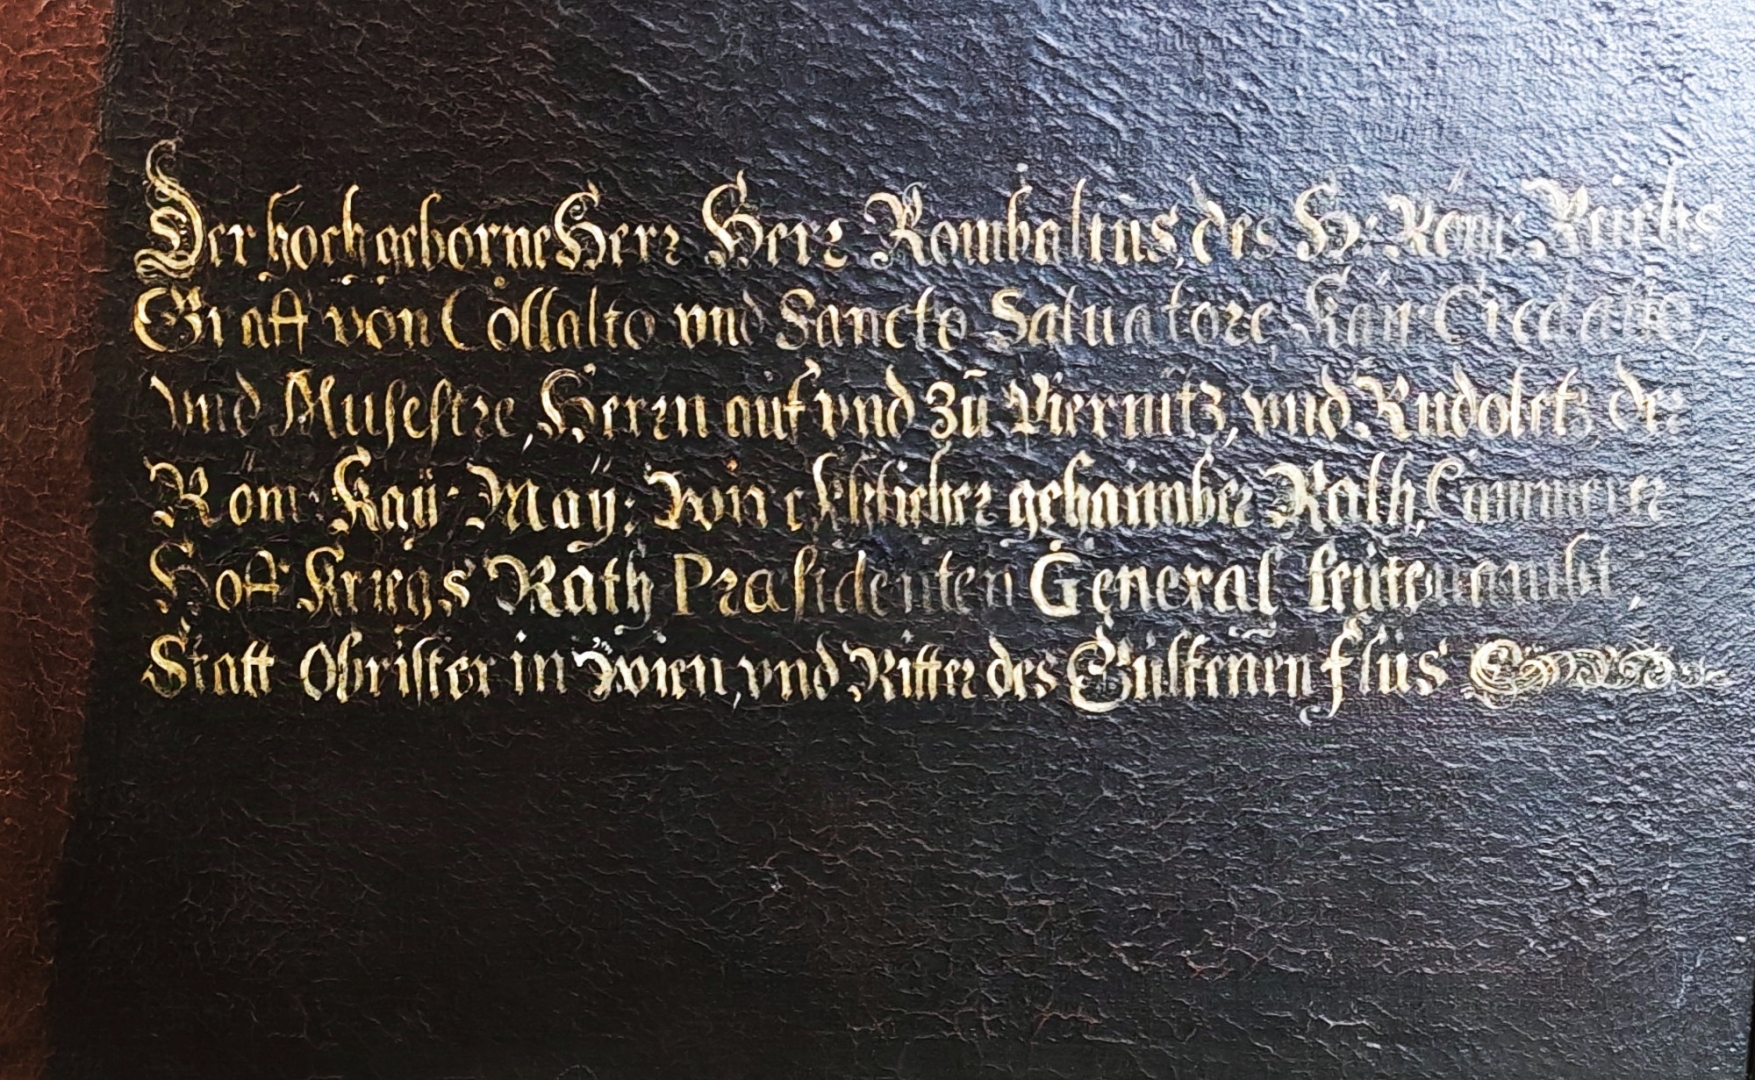 Der hochgeborne Herr Herr Rombaltus, des H: Röm: Reichs
Graff von Collalto vnd Sancto Saluatore, Rai: Credatio,
vnd Musestre, Herrn auf vnd Zů Piernitz, vnd Rudoletz, der
Röm: Kaÿ: Maÿ: gehaimber Rath, Cammerer
Hoff Kriegs Rath Præsidenten General leütenambt,
Statt Obrister in Wien, vnd Ritter des Gülttenen flüs